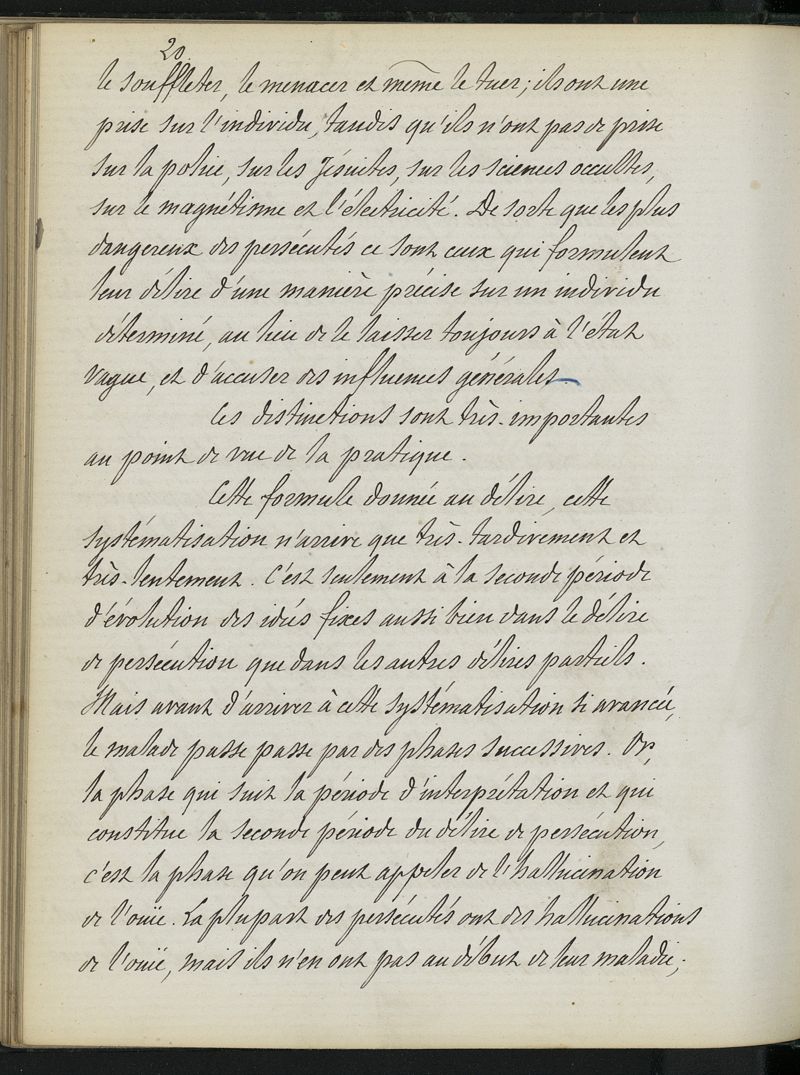 20
le souffleter, le menacer et même le tuer; ils ont une
prise sur l'individu, tandis qu'ils n'ont pas de prise
sur la police, sur les Jésuites, sur les sciences occultes,
sur le magnétisme et l'électricité. De sorte que les plus
dangereux des persécutés ce sont ceux qui formulent
leur délire d'une manière précise sur un individu
déterminé, au lieu de le laisser toujours à l'état
vague, et d'accuser des influences générales.
Ces distinctions sont très-importantes
au point de vue de la pratique.
Cette formule donnée au délire, cette
systématisation n'arrive que très-tardivement et
très-lentement. C'est seulement à la seconde période
d'évolution des idées fixes aussi bien dans le délire
de persécution que dans les autres délires partiels.
Mais avant d'arriver à cette systématisation si avancée,
le malade passe passe par des phases successives. Or,
la phase qui suit la période d'interprétation et qui
constitue la seconde période du délire de persécution,
c'est la phase qu'on peut appeler de l'hallucination
de l'ouïe. La plupart des persécutés ont des hallucinations
de l'ouïe, mais ils n'en ont pas au début de leur maladie;